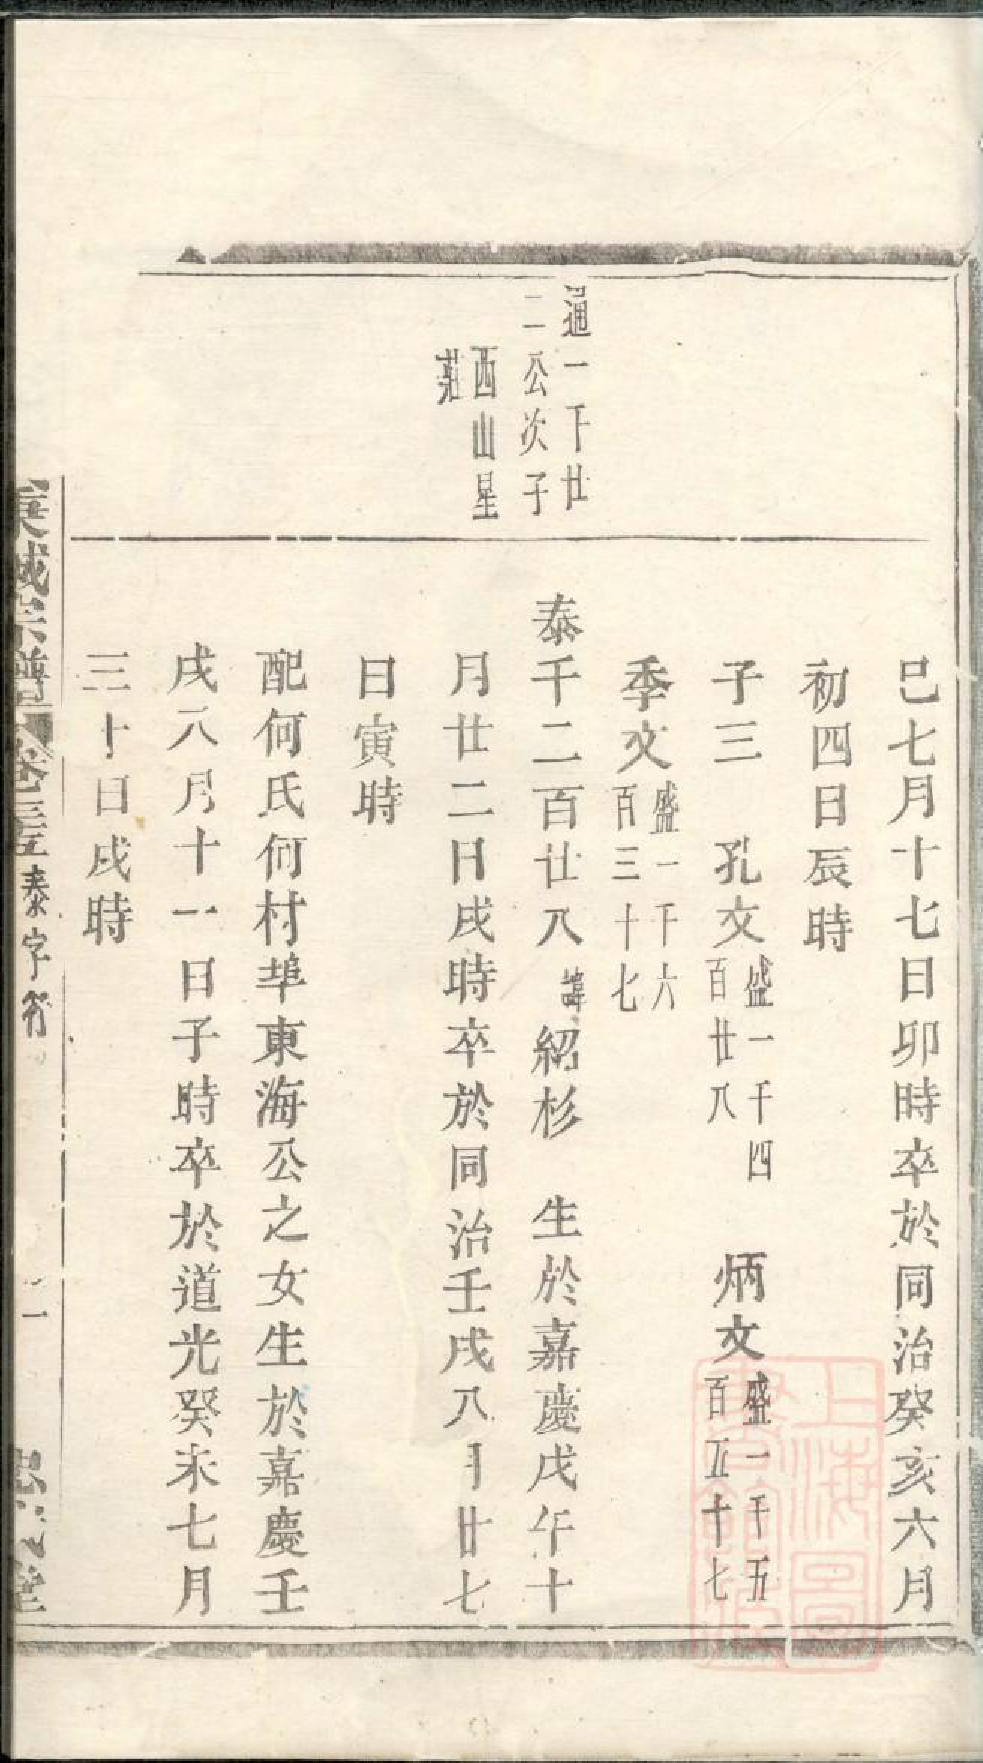 巳七月十七日卯時卒於同治癸亥六月
初四日辰時
子三 孔文盛一千四百廿八 炳文盛一千五百五十七
季文盛一千六百三十七
通一千廿
二公次子
西山星
莊
泰千二百廿八諱紹杉 生於嘉慶戊午十
月廿二日戌時卒於同治壬戌八月廿七
日寅時
配何氏何村埠東海公之女生於嘉慶壬
戌八月十一日子時卒於道光癸未七月
三十日戌時
城宗譜 卷三 泰字行
堂
上海圖